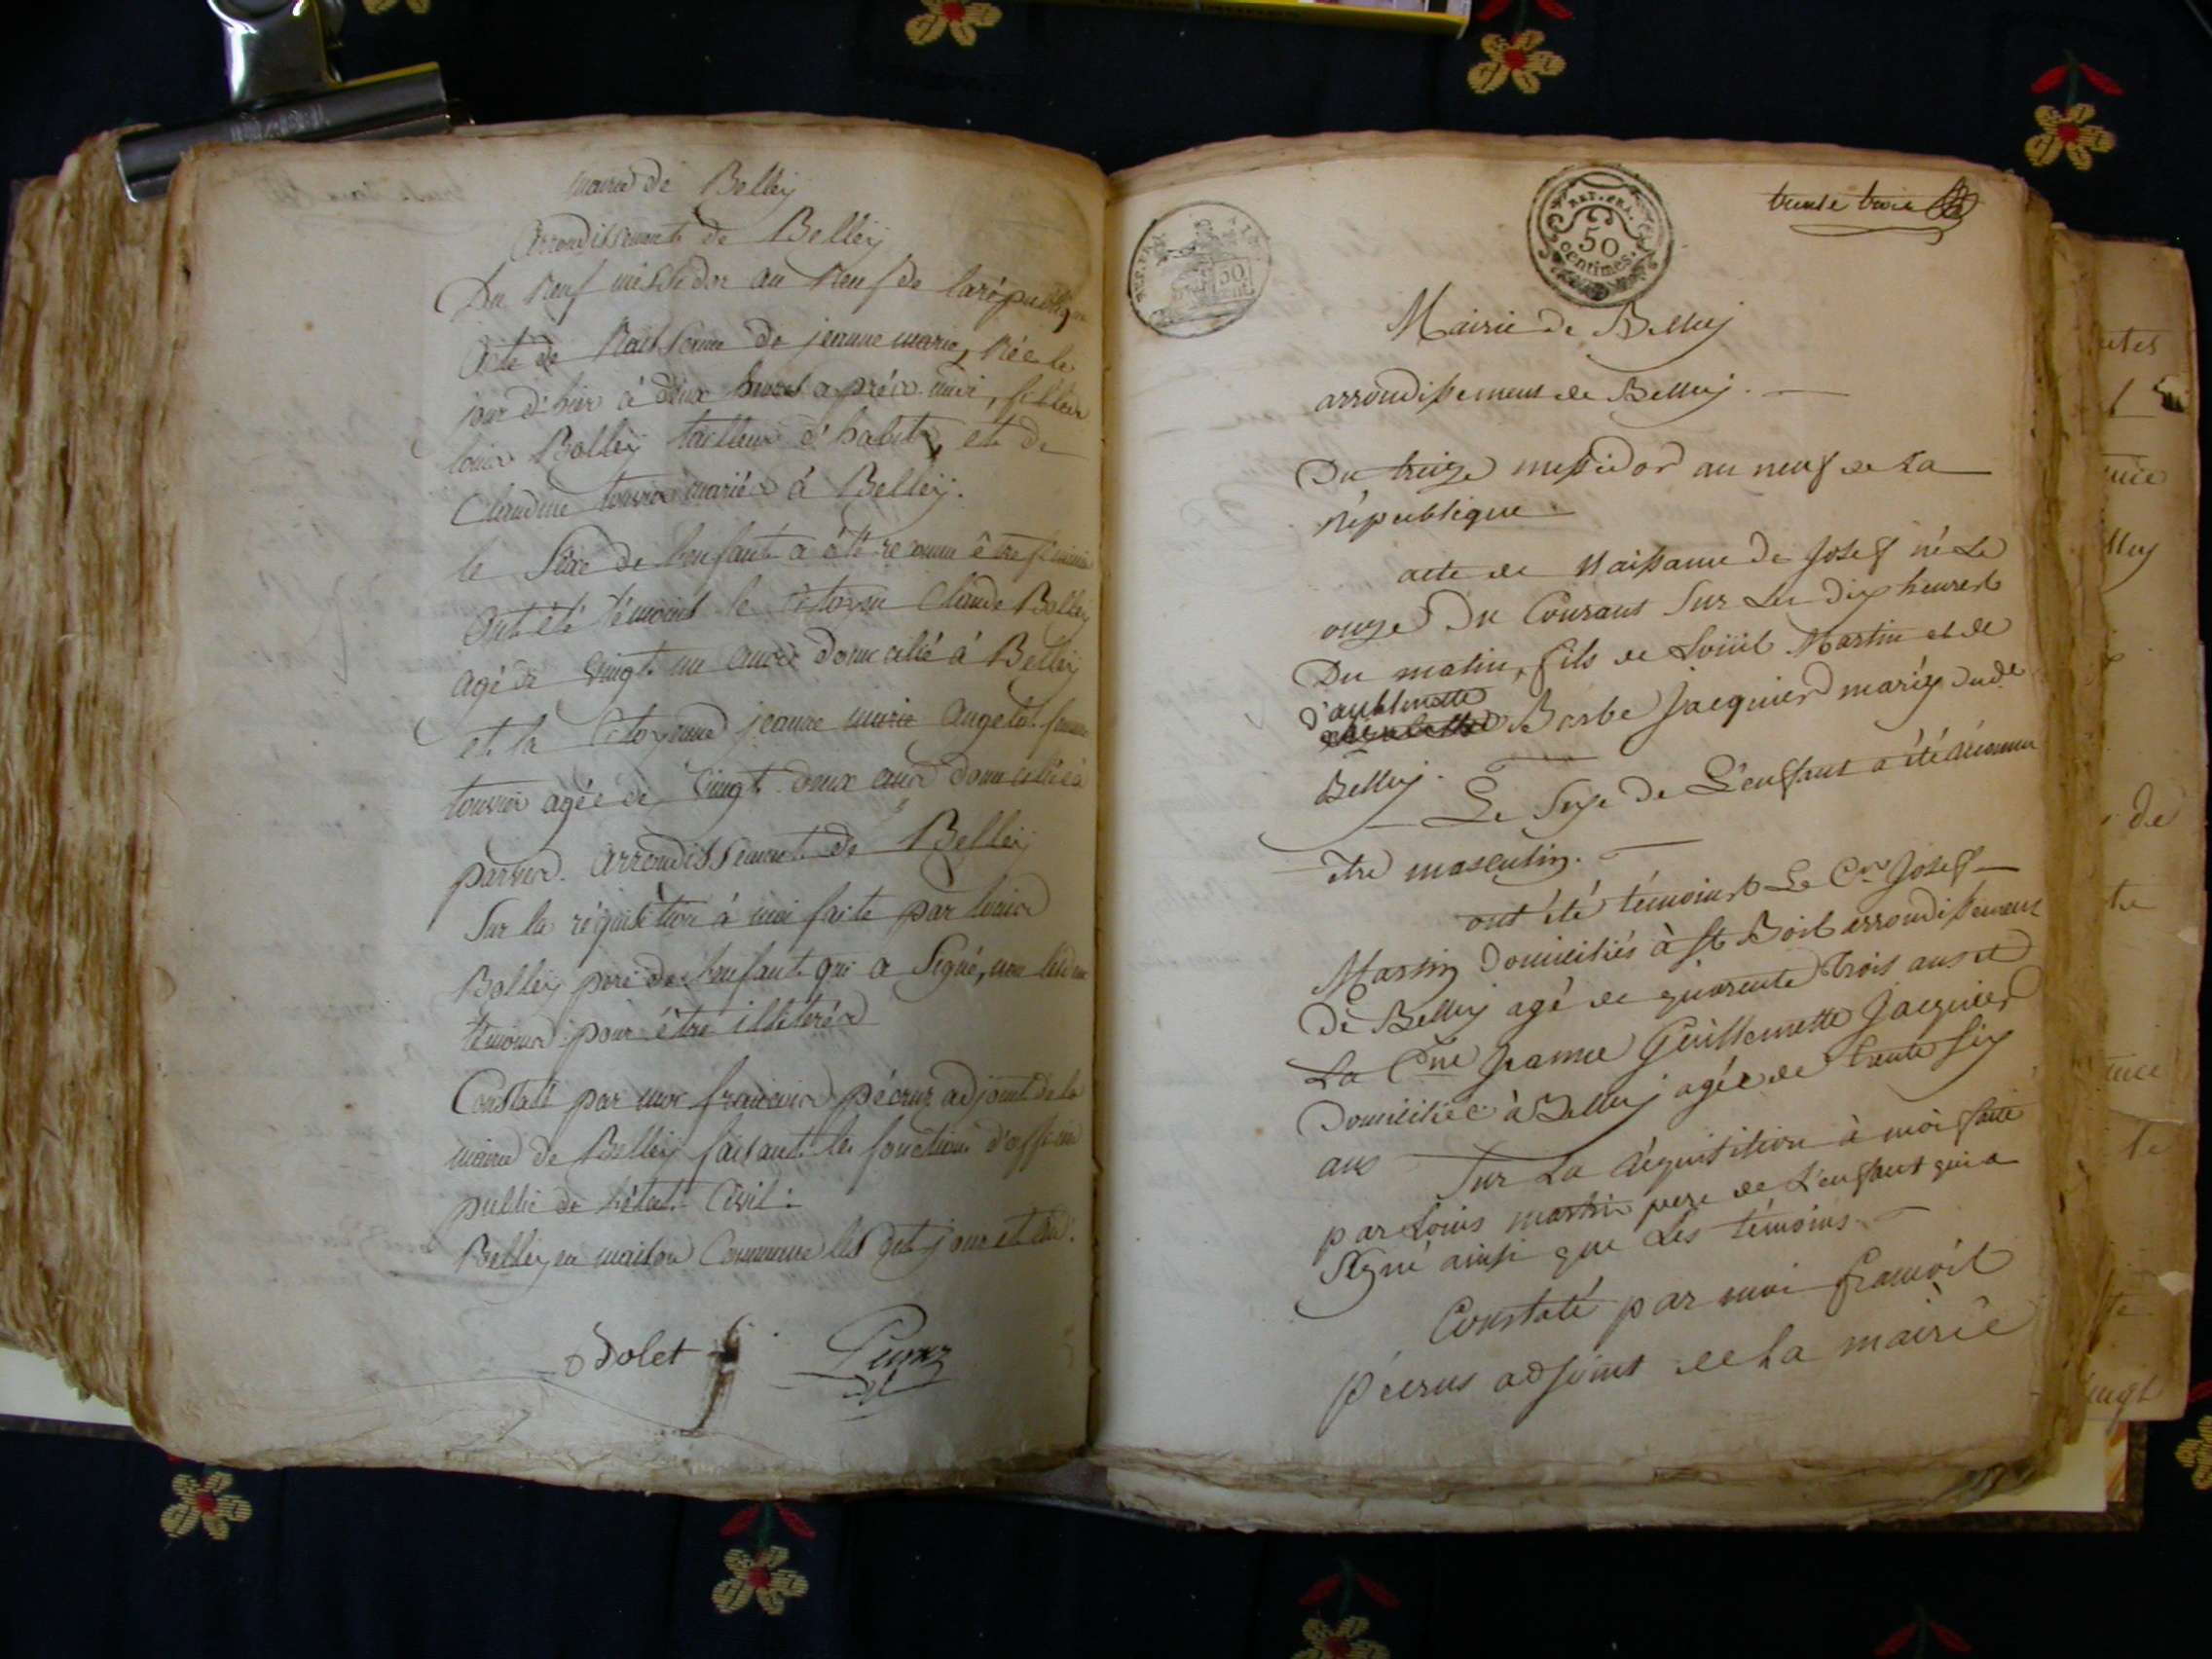 mairie de Belleÿ
Arrondissement de Belleÿ
Du Neuf messidor an Neuf de la république
Acte de Naissance de jeanne marie, Née le
jour d'hier à deux heures après midi, fille de
louis Bolley tailleur d'habits, et de
Claudine mariés à Belleÿ.
le Sexe de l'enfant a été reconnu être féminin
Ont été témoins le Citoyen Claude Bolley
agé de Vingt un domicilié à Belleÿ
et la Citoyenne jeanne marie femme
agée de Vingt deux ans domiciliée à
Arrondissement de Belleÿ
Sur la réquisition à moi faite par louis
Bolley père de l'enfant qui a Signé, non les
témoins pour être illitérés
Constaté par moi françois pécruz adjoint de la
mairie de Belleÿ faisant les fonctions d'officier
public de l'état Civil.
Belley en maison Commune les dits jour et an.
Dolet
REP. FRA.
50
centimes.
trente trois
Mairie de Belley
arrondissement de Belley.
Du treize messidor an neuf de La
République.
acte de Naissance de Josef né Le
onze Du Courant Sur Les Dix heures
Du matin, fils de Loüis Martin et de
Barbe Jacquier mariés audt
Belley.
Le Sexe de L'enfant a été réconnu
être masculin.
ont été témoins Le Cen Josef
Martin Domicilié à St Bois arrondissement
De Belley agé de quarente trois ans et
La Cne Jeanne Guillemette Jacquier
Domiciliée à Belley agée de trente six
ans
Sur La réquisition à moi faite
par Louis martin pere de L'enfant qui a
Signé ainsi que Les témoins.
Constaté par moi françois
Pécrus adjoint de La mairie